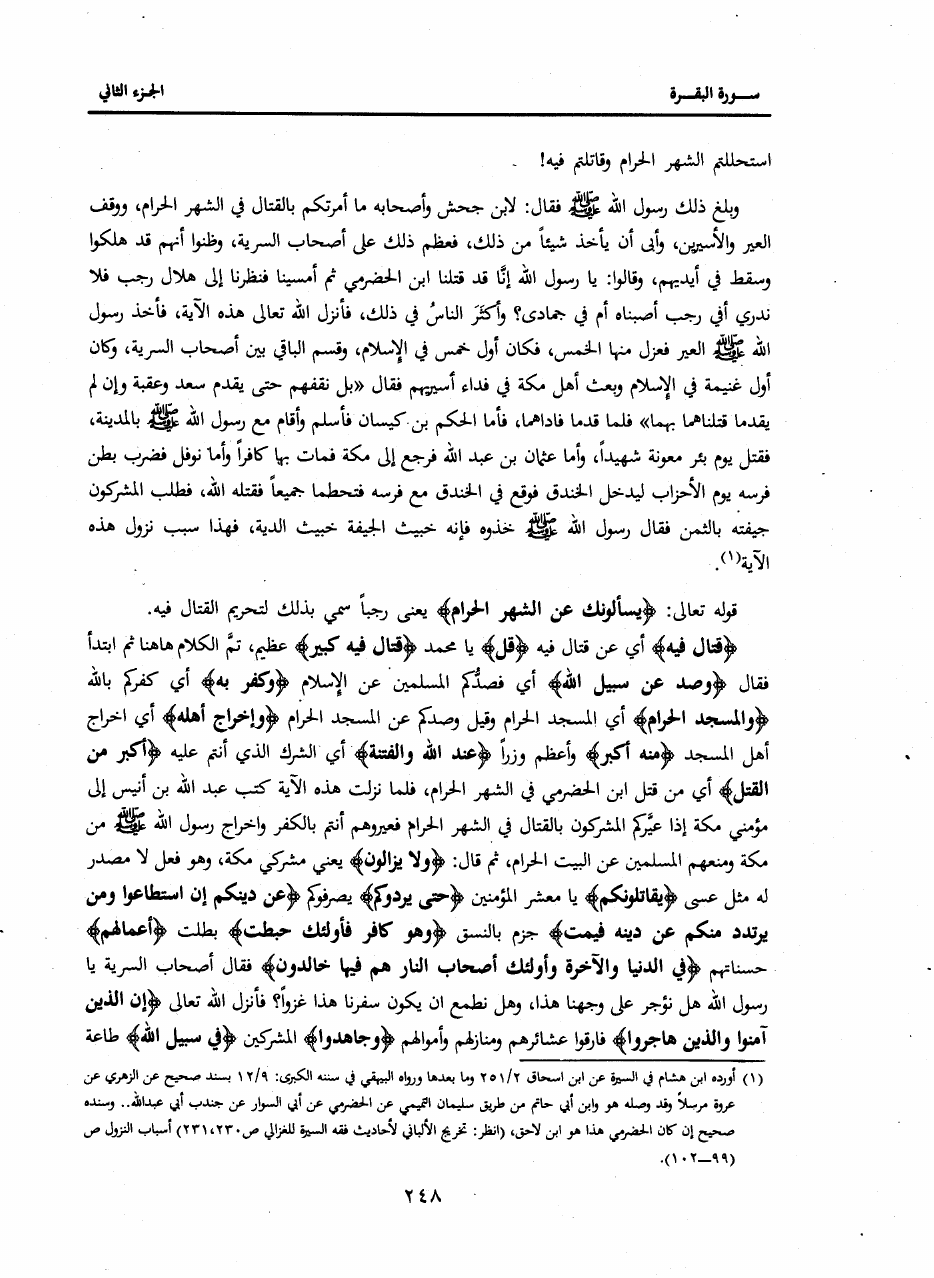 سـورة البقـرة
الجزء الثاني
استحللتم الشهر الحرام وقاتلتم فيه!
وبلغ ذلك رسول الله ﷺ فقال: لابن جحش وأصحابه ما أمرتكم بالقتال في الشهر الحرام، ووقف
العير والأسيرين، وأبى أن يأخذ شيئاً من ذلك، فعظم ذلك على أصحاب السرية، وظنوا أنهم قد هلكوا
وسقط في أيديهم، وقالوا: يا رسول الله إنَّا قد قتلنا ابن الحضرمي ثم أمسينا فنظرنا إلى هلال رجب فلا
ندري أفي رجب أصبناه أم في جمادى؟ وأكثَرَ الناسُ في ذلك، فأنزل الله تعالى هذه الآية، فأخذ رسول
الله ﷺ العير فعزل منها الخمس، فكان أول خمس في الإسلام، وقسم الباقي بين أصحاب السرية، وكان
أول غنيمة في الإسلام وبعث أهل مكة في فداء أسيريهم فقال «بل نقفهم حتى يقدم سعد وعقبة وإن لم
يقدما قتلناهما بهما» فلما قدما فاداهما، فأما الحكم بن كيسان فأسلم وأقام مع رسول الله ﷺ بالمدينة،
فقتل يوم بئر معونة شهيداً، وأما عثمان بن عبد الله فرجع إلى مكة فمات بها كافراً وأما نوفل فضرب بطن
فرسه يوم الأحزاب ليدخل الخندق فوقع في الخندق مع فرسه فتحطما جميعاً فقتله الله، فطلب المشركون
جيفته بالثمن فقال رسول الله ﷺ خذوه فإنه خبيث الجيفة خبيث الدية، فهذا سبب نزول هذه
الآية(١).
قوله تعالى: ﴿يسألونك عن الشهر الحرام﴾ يعنى رجباً سمي بذلك لتحريم القتال فيه.
﴿قتال فيه﴾ أي عن قتال فيه ﴿قل﴾ يا محمد ﴿قتال فيه كبير﴾ عظيم، تمَّ الكلام هاهنا ثم ابتدأ
فقال ﴿وصد عن سبيل الله﴾ أي فصدُّكم المسلمين عن الإسلام ﴿وكفر به﴾ أي كفركم بالله
﴿والمسجد الحرام﴾ أي المسجد الحرام وقيل وصدكم عن المسجد الحرام ﴿وإخراج أهله﴾ أي اخراج
أهل المسجد ﴿منه أكبر﴾ وأعظم وزراً ﴿عند الله والفتنة﴾ أي الشرك الذي أنتم عليه ﴿أكبر من
القتل﴾ أي من قتل ابن الحضرمي في الشهر الحرام، فلما نزلت هذه الآية كتب عبد الله بن أنيس إلى
مؤمني مكة إذا عيَّركم المشركون بالقتال في الشهر الحرام فعيروهم أنتم بالكفر واخراج رسول الله ﷺ من
مكة ومنعهم المسلمين عن البيت الحرام، ثم قال: ﴿ولا يزالون﴾ يعني مشركي مكة، وهو فعل لا مصدر
له مثل عسى ﴿يقاتلونكم﴾ يا معشر المؤمنين ﴿حتى يردوكم﴾ يصرفوكم ﴿عن دينكم إن استطاعوا ومن
يرتدد منكم عن دينه فيمت﴾ جزم بالنسق ﴿وهو كافر فأولئك حبطت﴾ بطلت ﴿أعمالهم﴾
حسناتهم ﴿في الدنيا والآخرة وأولئك أصحاب النار هم فيها خالدون﴾ فقال أصحاب السرية يا
رسول الله هل نؤجر على وجهنا هذا، وهل نطمع ان يكون سفرنا هذا غزواً؟ فأنزل الله تعالى ﴿إن الذين
آمنوا والذين هاجروا﴾ فارقوا عشائرهم ومنازلهم وأموالهم ﴿وجاهدوا﴾ المشركين ﴿في سبيل الله﴾ طاعة
(١) أورده ابن هشام في السيرة عن ابن اسحاق ٢٥١/٢ وما بعدها ورواه البيهقي في سننه الكبرى: ١٢/٩ بسند صحيح عن الزهري عن
عروة مرسلاً وقد وصله هو وابن أبي حاتم من طريق سليمان التميمي عن الحضرمي عن أبي السوار عن جندب أبي عبدالله.. وسنده
صحيح إن كان الحضرمي هذا هو ابن لاحق، (انظر: تخريج الألباني لأحاديث فقه السيرة للغزالي ص٢٣٠،٢٣١) أسباب النزول ص
(٩٩–١٠٢).
٢٤٨